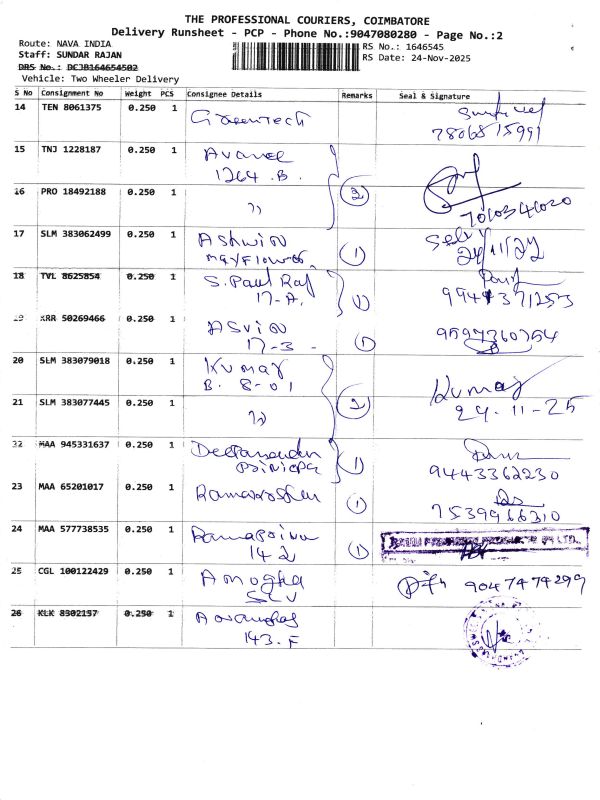 THE PROFESSIONAL COURIERS, COIMBATORE
Delivery Runsheet - PCP - Phone No.:9047080280 - Page No.:2
Route: NAVA INDIA
RS No.: 1646545
Staff: SUNDAR RAJAN
RS Date: 24-Nov-2025
DRS No.: DCJB164654502
Vehicle: Two Wheeler Delivery
S No Consignment No Weight PCS Consignee Details Remarks Seal & Signature
14 TEN 8061375 0.250 1 Greentech
7806815991
15 TNJ 1228187 0.250 1
1264.B.
16 PRO 18492188 0.250 1 " 2
17 SLM 383062499 0.250 1 Ashwin Selv
Mayflower 1 24/11/24
18 TVL 8625854 0.250 1 S. Paul Raj
17-A. 1
19 KRR 50269466 0.250 1 Asvin 9597360754
17-3 1
20 SLM 383079018 0.250 1 Kumar Kumar
B. 8-01
21 SLM 383077445 0.250 1 " 2 24.11-25
22 MAA 945331637 0.250 1
1 9443362230
23 MAA 65201017 0.250 1
1 7539966310
24 MAA 577738535 0.250 1
142 1
25 CGL 100122429 0.250 1 Amogha 9047474299
SLV
26 KLK 8302157 0.250 1
143.F